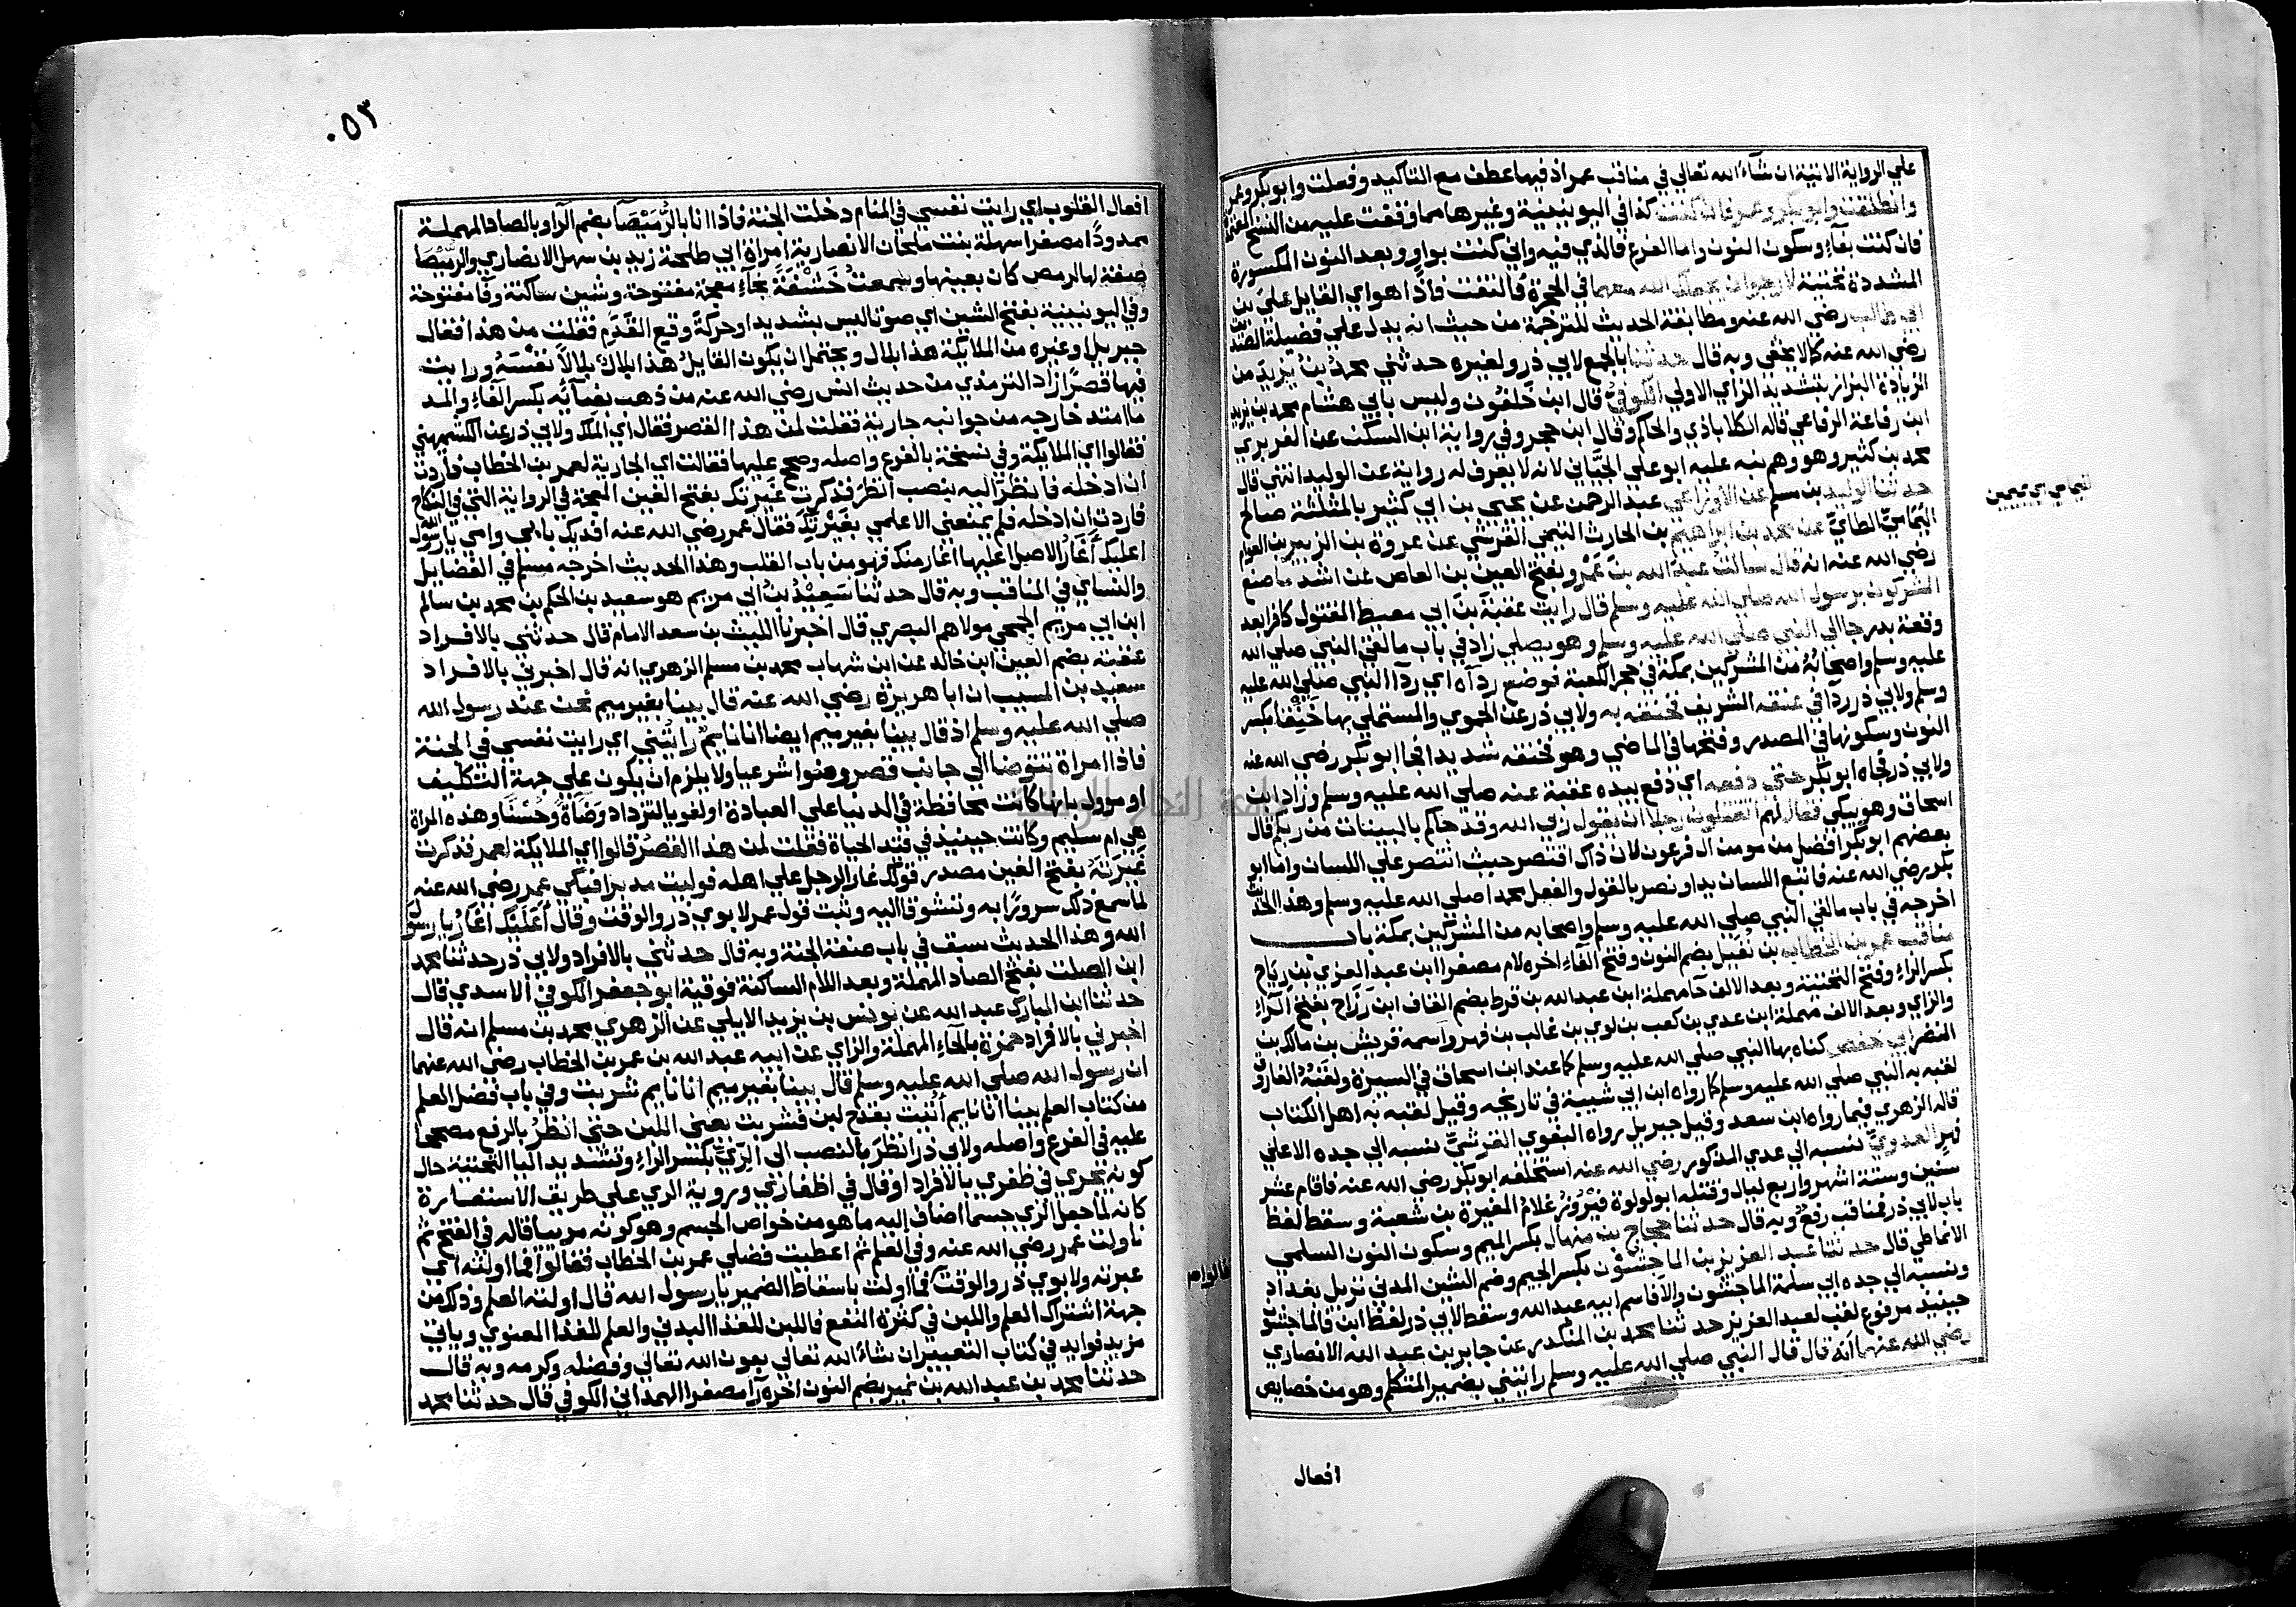 علي الرواية الاتية ان شاء الله تعالي في مناقب عمر اذ فيها عطف مع التاكيد وفعلت وابو بكر وعمر
وانطلقت وابو بكر وعمر فان كنت كذا في اليونينية وغيرها مما وقفت عليه من النسخ المعتمدة
فان كنت بفاء وسكون النون واما الفرع فالذي فيه واني كنت بواو وبعد النون المكسورة
المشددة تحتية لارجوا ان يجعلك الله معهما في الحجرة فالتفت فاذا هو اي القايل علي بن
ابي طالب رضي الله عنه ومطابقة الحديث للترجمة من حيث انه يدل علي فضيلة الصديق
رضي الله عنه كما لا يخفي وبه قال حدثنا بالجمع لابي ذر ولغيره حدثني محمد بن يزيد من
الزيادة البزاز بتشديد الزاي الاولي الكوفي قال ابن خلفون وليس بابي هشام محمد بن يزيد
ابن رفاعة الرفاعي قاله الكلاباذي والحاكم وقال ابن حجر وفي رواية ابن السكن عن الفربري
محمد بن كثير وهو وهم نبه عليه ابو علي الجياني لانه لا يعرف له رواية عن الوليد انتهي قال
حدثنا الوليد بن مسلم عن الاوزاعي عبد الرحمن عن يحيي بن ابي كثير بالمثلثة صالح
اليمامي الطائي عن محمد بن ابراهيم بن الحارث التيمي القرشي عن عروة بن الزبير بن العوام
رضي الله عنه انه قال سالت عبد الله بن عمرو بفتح العين بن العاص عن اشد ما صنع
المشركون برسول الله صلي الله عليه وسلم قال رايت عقبة بن ابي معيط المقتول كافرا بعد
وقعة بدر جا الي النبي صلي الله عليه وسلم وهو يصلي زاد في باب ما لقي النبي صلي الله
عليه وسلم واصحابه من المشركين بمكة في حجر الكعبة فوضع رداه اي ردا النبي صلي الله عليه
وسلم ولابي ذر ردا في عنقه الشريف فخنقه به ولابي ذر عن الحموي والمستملي بها خنقا بكسر
النون وسكونها في المصدر وفتحها في الماضي وهو فخنقه شديدا فجا ابو بكر رضي الله عنه
ولابي ذر فجاه ابو بكر حتي دفعه اي دفع بيده عقبة عنه صلي الله عليه وسلم وزاد ابن
اسحاق وهو يبكي فقال لهم اتقتلون رجلا ان يقول ربي الله وقد جاكم بالبينات من ربكم قال
بعضهم ابو بكر افضل من مومن ال فرعون لان ذاك اقتصر حيث انتصر علي اللسان واما ابو
بكر رضي الله عنه فاتبع اللسان يدا ونصر بالقول والفعل محمدا صلي الله عليه وسلم وهذا الحديث
اخرجه في باب ما لقي النبي صلي الله عليه وسلم واصحابه من المشركين بمكة باب
مناقب عمر بن الخطاب بن نفيل بضم النون وفتح الفاء اخره لام مصغرا ابن عبد العزي بن رياح
بكسر الراء وفتح التحتية وبعد الالف حا مهملة ابن عبد الله بن قرط بضم القاف ابن رزاح بفتح الراء
والزاي وبعد الالف مهملة ابن عدي بن كعب بن لوي بن غالب بن فهر واسمه قريش بن مالك بن
النضر ابي حفص كناه بها النبي صلي الله عليه وسلم كما عند ابن اسحاق في السيرة ولقبه الفاروق
لقبه به النبي صلي الله عليه وسلم كما رواه ابن ابي شيبة في تاريخه وقيل لقبه به اهل الكتاب
قاله الزهري فيما رواه ابن سعد وقيل جبريل رواه البغوي القرشي نسبه الي جده الاعلي
فهر العدوي نسبه الي عدي المذكور رضي الله عنه استخلفه ابو بكر رضي الله عنه فاقام عشر
سنين وستة اشهر واربع ليال وقتله ابو لولوة فيروز غلام المغيرة بن شعبة وسقط لفظ
باب لابي ذر فمناقب رفع وبه قال حدثنا حجاج بن منهال بكسر الميم وسكون النون السلمي
الانماطي قال حدثنا عبد العزيز بن الماجشون بكسر الجيم وضم الشين المدني نزيل بغداد
ونسبه الي جده ابي سلمة الماجشون والا فاسم ابيه عبد الله وسقط لابي ذر لفظ ابن فالماجشون
حينيذ مرفوع لقب لعبد العزيز حدثنا محمد بن المنكدر عن جابر بن عبد الله الانصاري
رضي الله عنهما انه قال قال النبي صلي الله عليه وسلم رايتني بضمير المتكلم وهو من خصايص
افعال
٠٥٣
افعال القلوب اي رايت نفسي في المنام دخلت الجنة فاذا انا بالرميصا بضم الراء وبالصاد المهملة
ممدودا مصغرا سهلة بنت ملحان الانصارية امراة ابي طلحة زيد بن سهل الانصاري والرميصا
صفة لها لرمص كان بعينها وسمعت خشفة بخاء معجمة مفتوحة وشين ساكنة وفا مفتوحة
وفي اليونينية بفتح الشين اي صوتا ليس بشديد او حركة وقع القدم فقلت من هذا فقال
جبريل او غيره من الملايكة هذا بلال ويحتمل ان يكون القايل هذا بلال بلالا نفسه ورايت
فيها قصرا زاد الترمذي من حديث انس رضي الله عنه من ذهب بفنائه بكسر الفاء والمد
ما امتد خارجه من جوانبه جارية فقلت لمن هذا القصر فقال اي الملك ولابي ذر عن الكشميهني
فقالوا اي الملايكة وفي نسخة بالفرع واصله وصحح عليها فقالت اي الجارية لعمر بن الخطاب فاردت
ان ادخله فانظر اليه بنصب انظر فذكرت غيرتك بفتح الغين المعجمة في الرواية التي في النكاح
فاردت ان ادخله فلم يمنعني الا علمي بغيرتك فقال عمر رضي الله عنه افديك بابي وامي يا رسول الله
اعليك اغار الاصل اعليها اغار منك فهو من باب القلب وهذا الحديث اخرجه مسلم في الفضايل
والنساي في المناقب وبه قال حدثنا سعيد بن ابي مريم هو سعيد بن الحكم بن محمد بن سالم
ابن ابي مريم الجمحي مولاهم البصري قال اخبرنا الليث بن سعد الامام قال حدثني بالافراد
عقيل بضم العين ابن خالد عن ابن شهاب محمد بن مسلم الزهري انه قال اخبرني بالافراد
سعيد بن المسيب ان ابا هريرة رضي الله عنه قال بينا بغير ميم نحن عند رسول الله
صلي الله عليه وسلم اذ قال بينا بغير ميم ايضا انا نايم رايتني اي رايت نفسي في الجنة
فاذا امراة تتوضا الي جانب قصر وضوا شرعيا ولا يلزم ان يكون علي جهة التكليف
او مؤول بانها كانت محافظة في الدنيا علي العبادة او لغويا لتزداد وضاة وحسنا وهذه المراة
هي ام سليم وكانت حينيذ في قيد الحياة فقلت لمن هذا القصر قالوا اي الملايكة لعمر فذكرت
غيرته بفتح الغين مصدر قولك غار الرجل علي اهله فوليت مدبرا فبكي عمر رضي الله عنه
لما سمع ذلك سرورا به وتشوقا اليه وثبت قول عمر لابوي ذر والوقت وقال اعليك اغار يا رسول
الله وهذا الحديث سبق في باب صفة الجنة وبه قال حدثني بالافراد ولابي ذر حدثنا محمد
ابن الصلت بفتح الصاد المهملة وبعد اللام الساكنة فوقية ابو جعفر الكوفي الاسدي قال
حدثنا ابن المبارك عبد الله عن يونس بن يزيد الايلي عن الزهري محمد بن مسلم انه قال
اخبرني بالافراد حمزة بالحاء المهملة والزاي عن ابيه عبد الله بن عمر بن الخطاب رضي الله عنهما
ان رسول الله صلي الله عليه وسلم قال بينا بغير ميم انا نايم شربت وفي باب فضل العلم
من كتاب العلم بينا انا نايم أتيت بقدح لبن فشربت يعني اللبن حتي انظر بالرفع مصححا
عليه في الفرع واصله ولابي ذر انظر بالنصب الي الري بكسر الراء وتشديد اليا التحتية حال
كونه يجري في ظفري بالافراد او قال في اظفاري وروية الري علي طريق الاستعارة
كانه لما جعل الري جسما اضاف اليه ما هو من خواص الجسم وهو كونه مريا قاله في الفتح ثم
ناولت عمر رضي الله عنه وفي العلم ثم اعطيت فضلي عمر بن الخطاب فقالوا فما اولته اي
عبرته ولابوي ذر والوقت فما اولت باسقاط الضمير يا رسول الله قال اولته العلم وذلك من
جهة اشتراك العلم واللبن في كثرة النفع فاللبن للغذا البدني والعلم للغذا المعنوي وياتي
مزيد فوايد في كتاب التعبير ان شاء الله تعالي بعون الله تعالي وفضله وكرمه وبه قال
حدثنا محمد بن عبد الله بن نمير بضم النون اخره را مصغرا الهمداني الكوفي قال حدثنا محمد